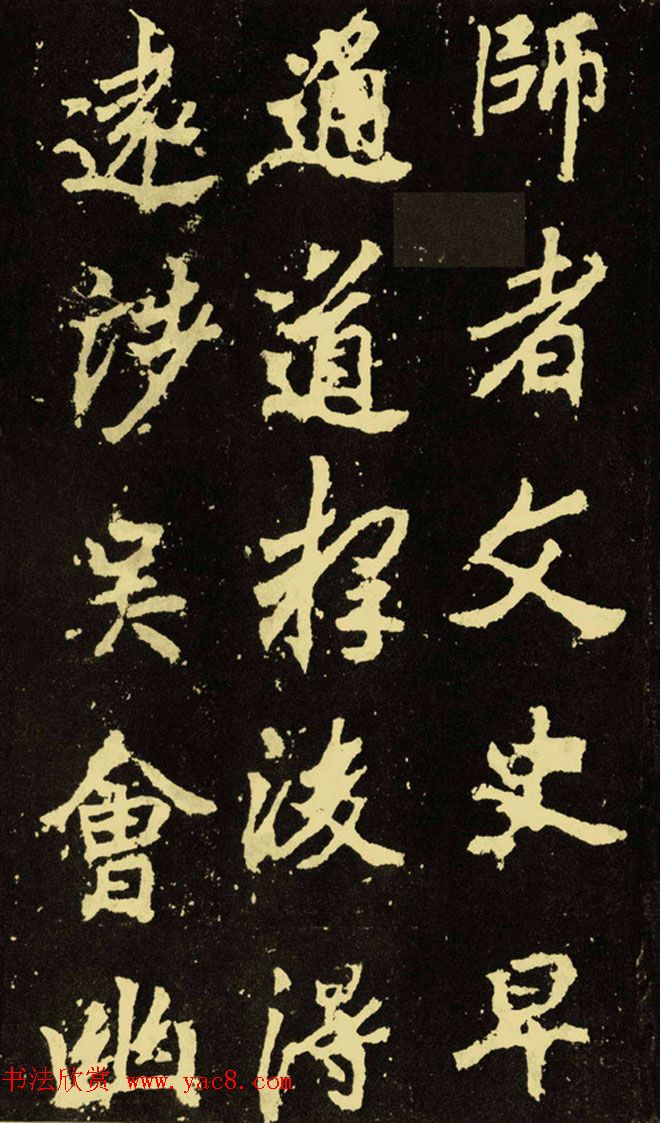 師者文史早
通道釋後得
遠涉吳會幽
书法欣赏 www.yac8.com